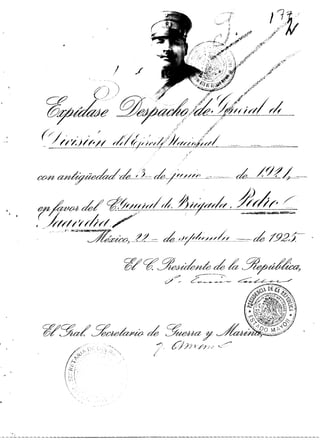 177
Expídase Despacho de General de
División del Ejército Nacional
con antigüedad de 3 de junio de 1921,
en favor del C. General de Brigada, Pedro
Saavedra
México, 22 de septiembre de 1925.
El C. Presidente de la República,
El Gral. Secretario de Guerra y Marina,
PRESIDENCIA DE LA REPUBLICA
ESTADO MAYOR